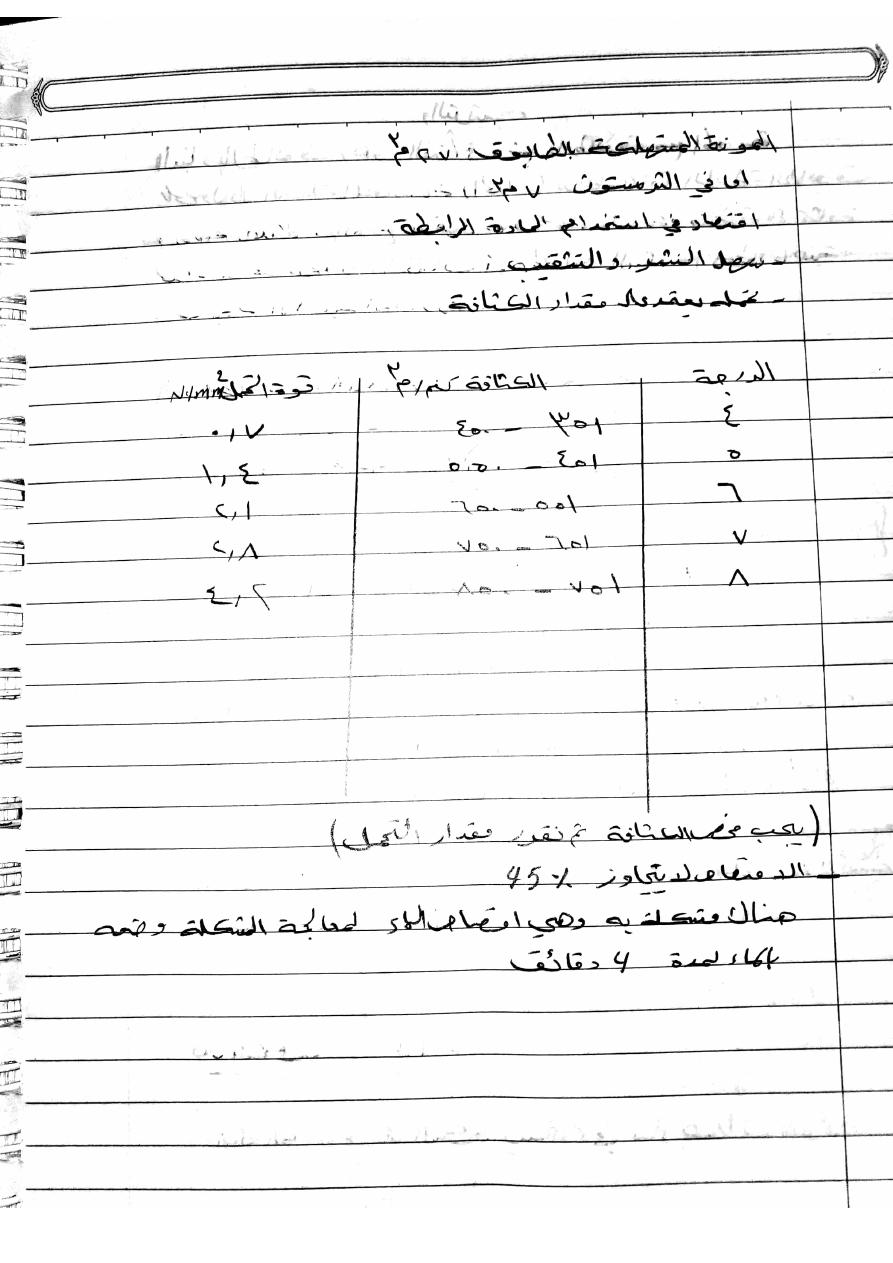 المونة المستهلكة بالطابوق ٠٫٢٧ م٣
اما في الثرمستون ٧ م٣
اقتصاد في استخدام المادة الرابطة
- سهل النشر والتثقيب
- تحمله يعتمد على مقدار الكثافة
الدرجة الكثافة كغم/م٣ قوة التحمل N/mm²
٤ ٣٥١ - ٤٥٠ ٠٫٧
٥ ٤٥١ - ٥٥٠ ١٫٤
٦ ٥٥١ - ٦٥٠ ٢٫١
٧ ٦٥١ - ٧٥٠ ٢٫٨
٨ ٧٥١ - ٨٥٠ ٤٫٢
(يجب فحص الكثافة ثم نقدر مقدار التحمل)
- الامتصاص لا يتجاوز 45%
هناك مشكلة به وهي امتصاص الماء لمعالجة المشكلة وضعه
بالماء لمدة 4 دقائق